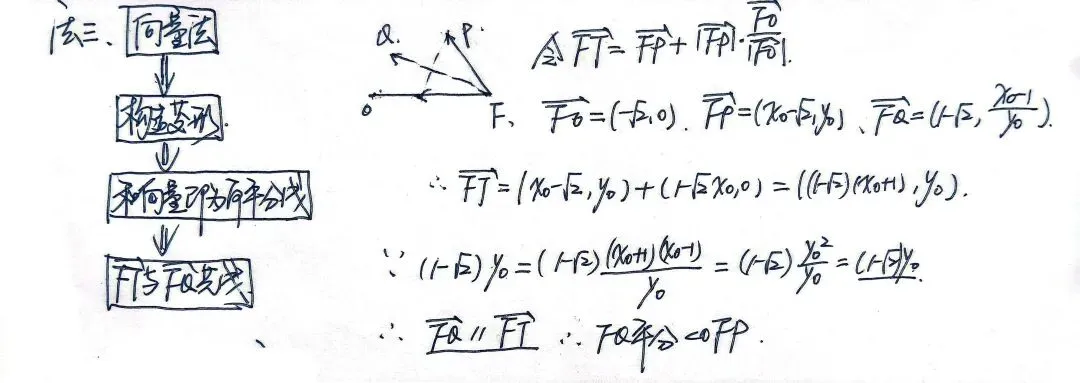 法三、向量法
构造菱形.
和向量即为角平分线
FT与FQ共线
Q. P.
O F
令 \overrightarrow{FT} = \overrightarrow{FP} + |\overrightarrow{FP}|·\frac{\overrightarrow{FO}}{|\overrightarrow{FO}|}.
\overrightarrow{FO} = (-√2, 0). \overrightarrow{FP} = (x₀-√2, y₀)、\overrightarrow{FQ} = (1-√2, \frac{x₀-1}{y₀}).
∴ \overrightarrow{FT} = (x₀-√2, y₀) + (1-√2x₀, 0) = ((1-√2)(x₀+1), y₀).
∵ (1-√2) y₀ = (1-√2) \frac{(x₀+1)(x₀-1)}{y₀} = (1-√2) \frac{y₀²}{y₀} = (1-√2)y₀.
∴ \overrightarrow{FQ} // \overrightarrow{FT} ∴ FQ平分<OFP.